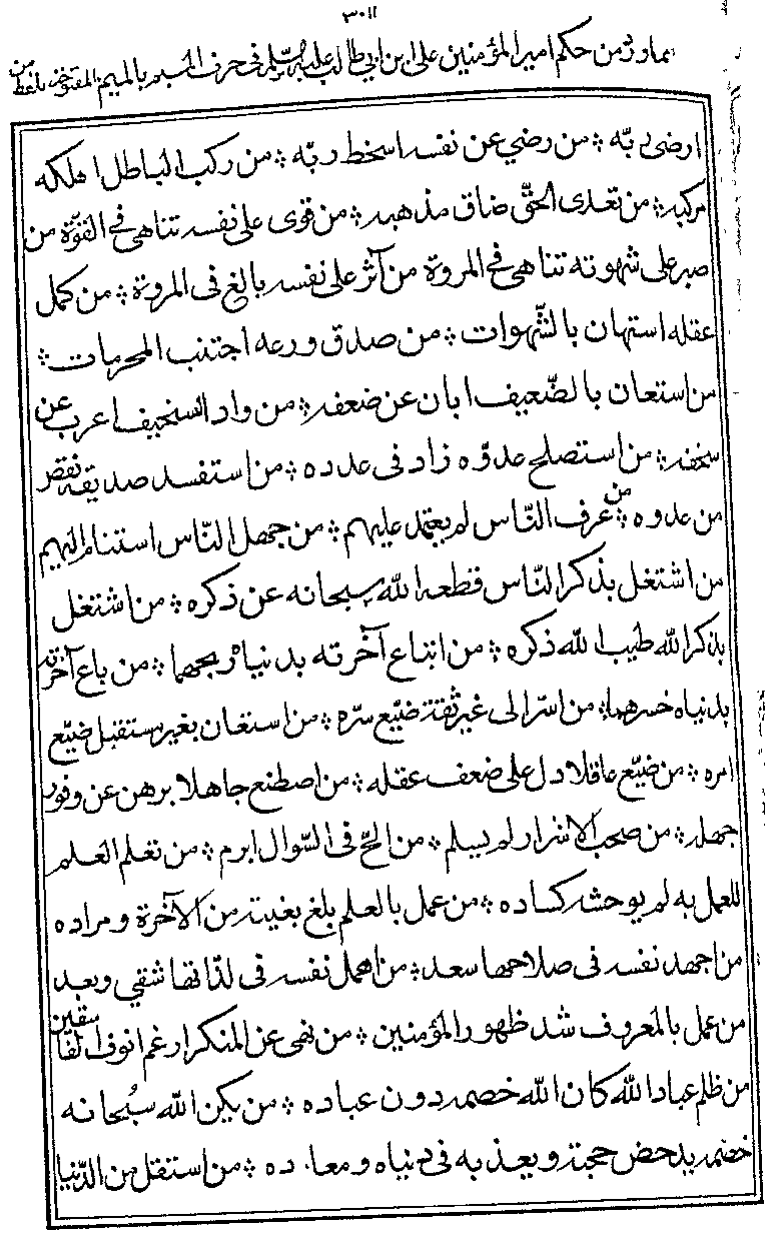 ٣٠١١
مما ورد من حكم امير المؤمنين على ابن ابي طالب عليه السلم فى حرف الميم بالميم المفتوحة بلفظ من
ارضى ربّه ؞ من رضي عن نفسه اسخط ربّه ؞ من ركب الباطل اهلكه
مركبه ؞ من تعدى الحقّ ضاق مذهبه ؞ من قوى على نفسه تناهى فى القوّة من
صبر على شهوته تناهى فى المروة من آثر على نفسه بالغ فى المروة ؞ من كمل
عقله استهان بالشّهوات ؞ من صدق ورعه اجتنب المحرمات ؞
من استعان بالضّعيف ابان عن ضعفه ؞ من واد السخيف اعرب عن
سخفه ؞ من استصلح عدوّه زاد فى عدده ؞ من استفسد صديقه نقص
من عدوه ؞ من عرف النّاس لم يعتمد عليهم ؞ من جهل النّاس استنام اليهم
من اشتغل بذكر النّاس قطعه الله سبحانه عن ذكره ؞ من اشتغل
بذكر الله طيب الله ذكره ؞ من ابتاع آخرته بدنياه ربحهما ؞ من باع آخرته
بدنياه خسرهما ؞ من اسّر الى غير ثقة ضيّع سرّه ؞ من استعان بغير مستقبل ضيّع
امره ؞ من ضيّع عاقلا دل على ضعف عقله ؞ من اصطنع جاهلا برهن عن وفور
جهله ؞ من صحب الاشرار لم يسلم ؞ من الحّ فى السّوال ابرم ؞ من تعلم العلم
للعمل به لم يوحشه كساده ؞ من عمل بالعلم بلغ بغيته من الآخرة ومراده
من اجهد نفسه فى صلاحها سعد ؞ من اهمل نفسه فى لذاتها شقي وبعد
من عمل بالمعروف شد ظهور المؤمنين ؞ من نهى عن المنكر ارغم انوف الفاسقين
من ظلم عباد الله كان الله خصمه دون عباده ؞ من يكن الله سبُحانه
خصمه يدحض حجته ويعذبه فى دنياه ومعاده ؞ من استقل من الدّنيا